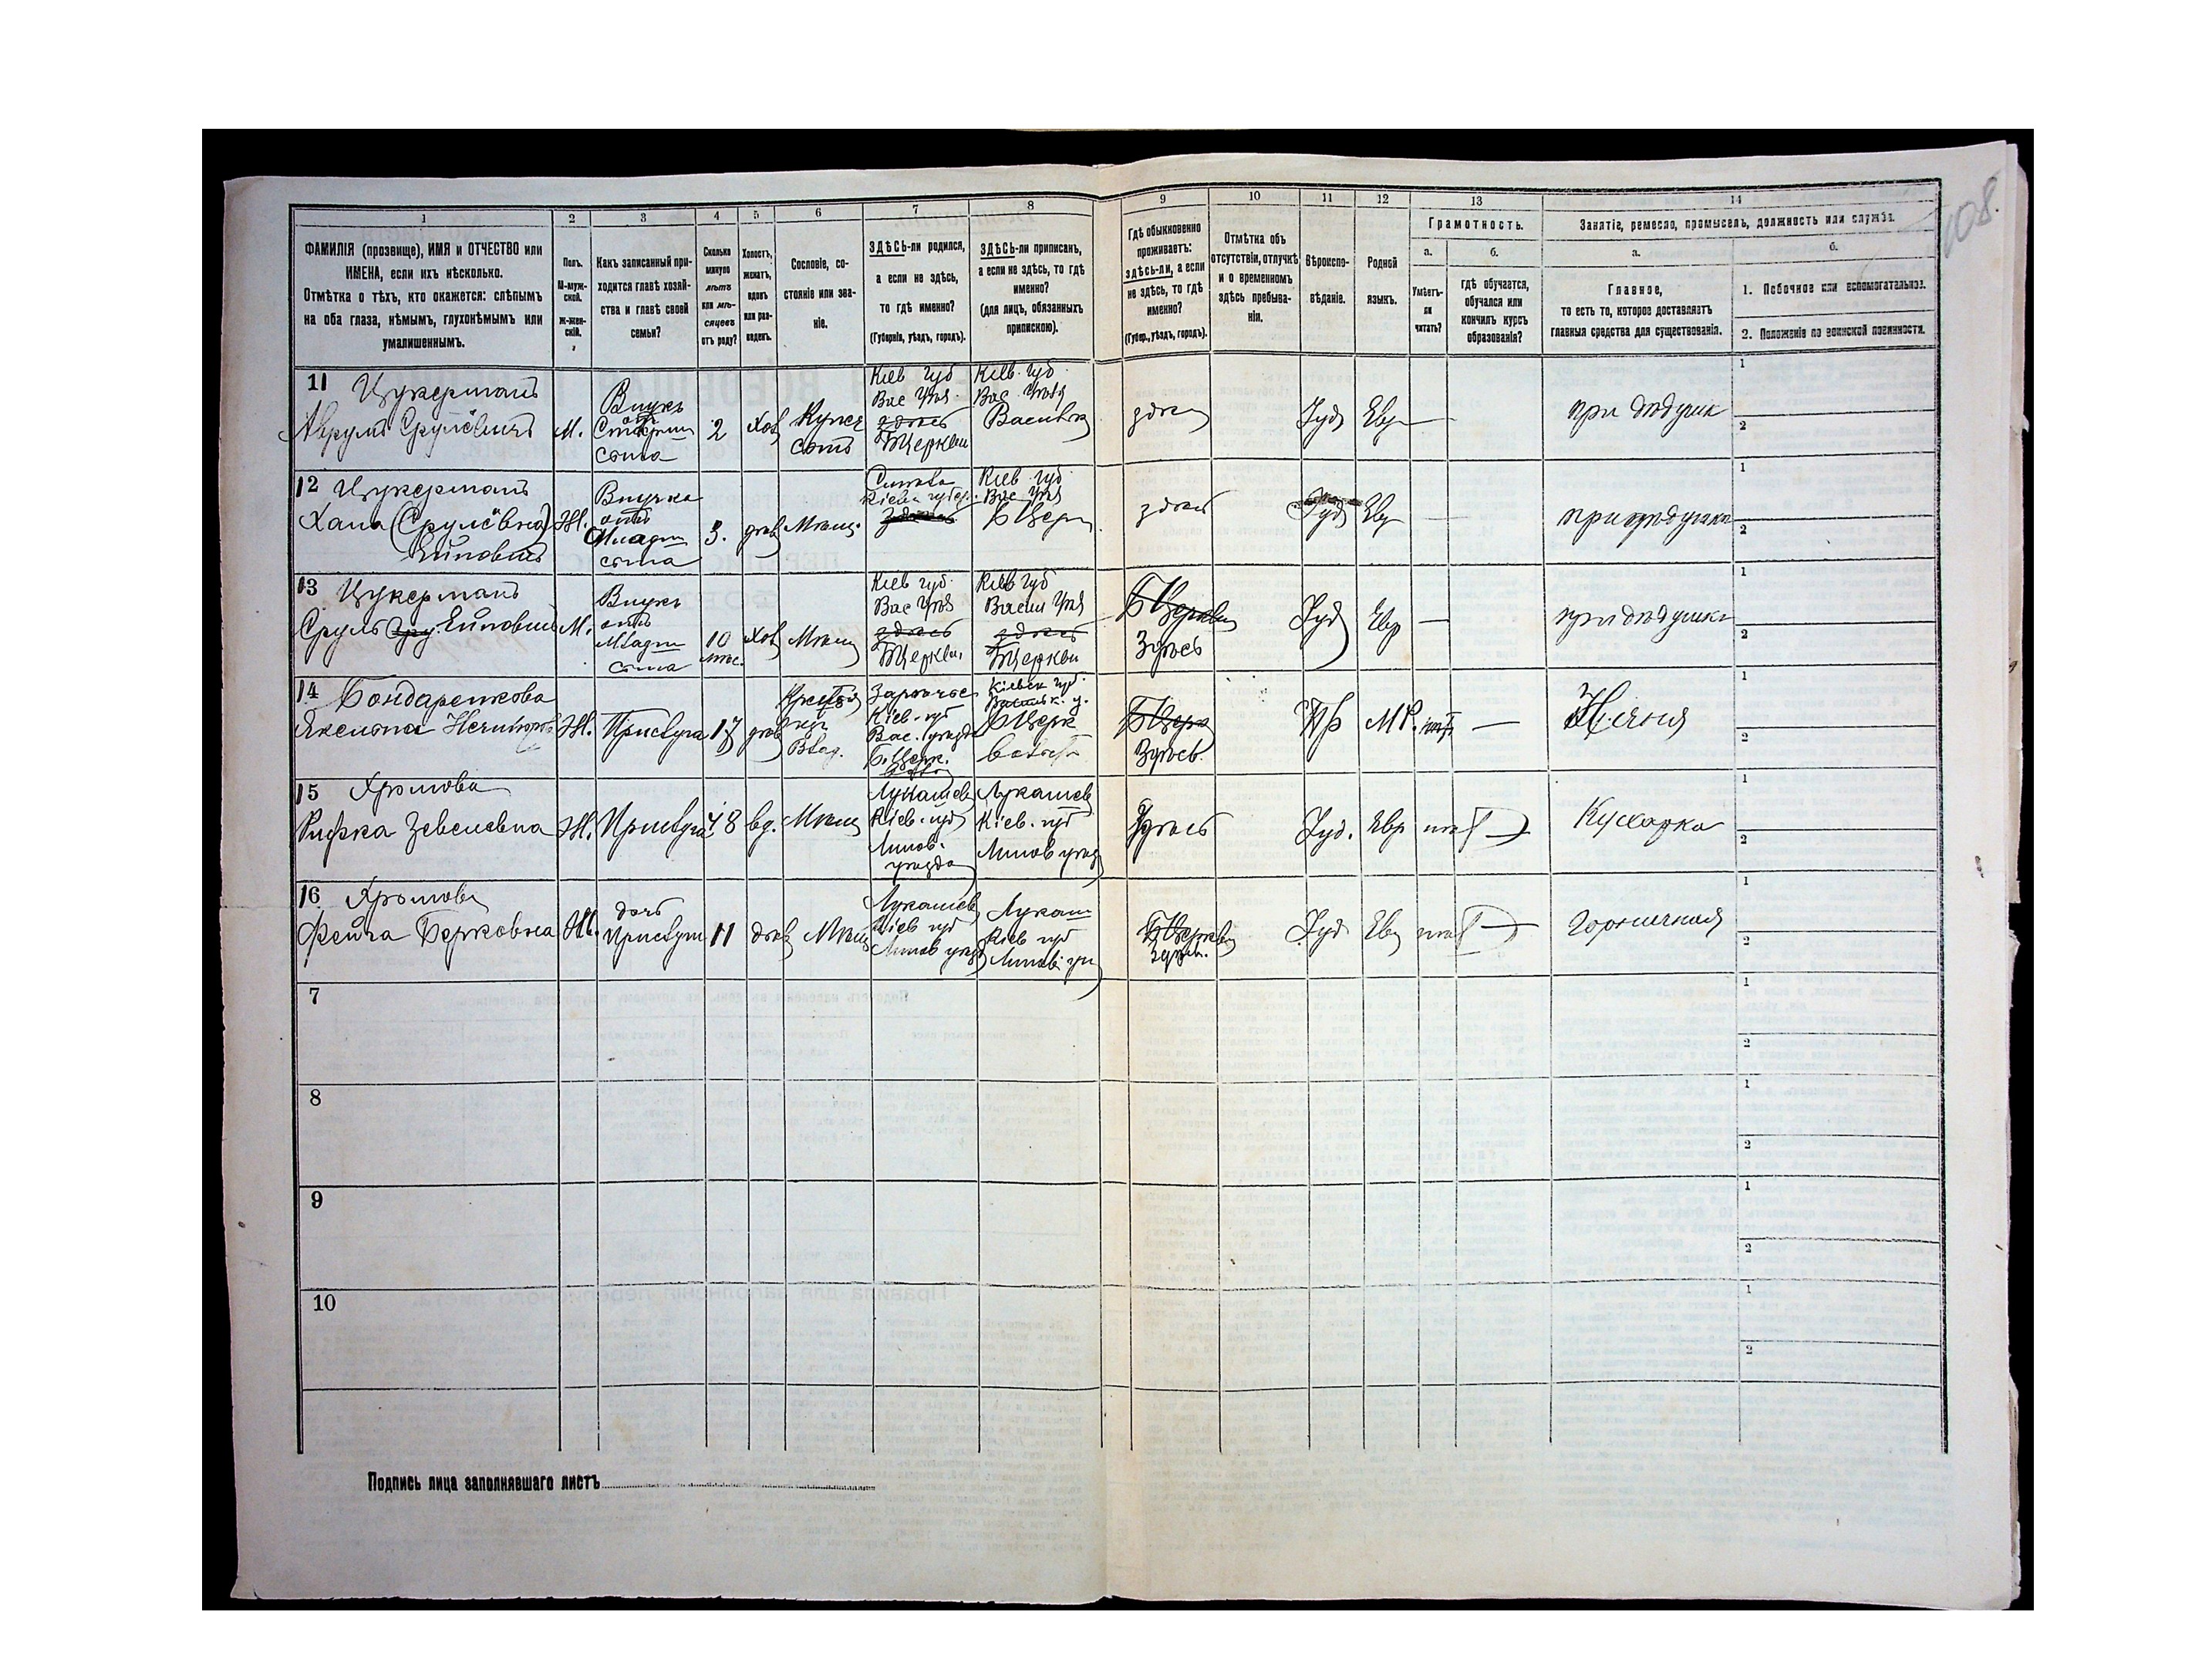 108.
1 2 3 4 5 6 7 8 9 10 11 12 13 14
ФАМИЛІЯ (прозвище), ИМЯ и ОТЧЕСТВО или
ИМЕНА, если ихъ нѣсколько.
Отмѣтка о тѣхъ, кто окажется: слѣпымъ
на оба глаза, нѣмымъ, глухонѣмымъ или
умалишеннымъ.
Полъ.
М-муж-
ской.
ж-жен-
скій.
Какъ записанный при-
ходится главѣ хозяй-
ства и главѣ своей
семьи?
Сколько
минуло
лѣтъ
или мѣ-
сяцевъ
отъ роду?
Холостъ,
женатъ,
вдовъ
или раз-
веденъ.
Сословіе, со-
стояніе или зва-
ніе.
ЗДѢСЬ-ли родился,
а если не здѣсь,
то гдѣ именно?
(Губернія, уѣздъ, городъ).
ЗДѢСЬ-ли приписанъ,
а если не здѣсь, то гдѣ
именно?
(для лицъ, обязанныхъ
припискою).
Гдѣ обыкновенно
проживаетъ:
здѣсь-ли, а если
не здѣсь, то гдѣ
именно?
(Губер., уѣздъ, городъ).
Отмѣтка объ
отсутствіи, отлучкѣ
и о временномъ
здѣсь пребыва-
ніи.
Вѣроиспо-
вѣданіе.
Родной
языкъ.
Грамотность.
а.
Умѣетъ-
ли
читать?
б.
гдѣ обучается,
обучался или
кончилъ курсъ
образованія?
Занятіе, ремесло, промыселъ, должность или служба.
а.
Главное,
то есть то, которое доставляетъ
главныя средства для существованія.
б.
1. Побочное или вспомогательное.
2. Положеніе по воинской повинности.
11 Цукерманъ
Аврумъ Срулевичъ
М.
Внукъ
отъ
сына
2
Хол
Купеч
Кіев губ
Вас Уѣз
здѣсь
БЦеркви
Кіев. губ.
Вас. Уѣзд
здѣсь
Іуд
Евр
—
при дѣдушк
1
2
12 Цукерманъ
Хана (Срулёвна)
М.
Внучка
отъ
Младш
сына
3.
дѣв
Мѣщ.
Кіев губер.
здѣсь
Кіев губ
Вас Уѣз
БЦерк
здѣсь
Іуд
Евр
—
при дѣдушки
1
2
13 Цукерманъ
Сруль
М.
Внукъ
отъ
Младш
сына
10
мѣс.
Хол
Мѣщ
Кіев губ.
Вас Уѣз
здѣсь
БЦеркви
Кіев губ
Васил Уѣз
здѣсь
БЦеркви
БЦеркви
Здѣсь
Іуд
Евр
—
при дѣдушки
1
2
14 Бондаренкова
Ж.
Прислуга
17
дѣв
Влад.
Кіев. губ
Вас. уѣзда
Б.Церк.
Кіевск губ.
Васильк. у.
БЦерк
волост
БЦерк
Здѣсь.
Пр
М.Р.
нѣт
—
Няня
1
2
15 Хромова
Рифка Зевелевна
Ж.
Прислуга
48
вд.
Мѣщ
Лукашев
Кіев. губ
Липов.
уѣзда
Лукашев
Кіев. губ
Липов уѣзд
Здѣсь
Іуд.
Евр
нѣт
—
Кухарка
1
2
16 Хромова
Фейга Берковна
Ж.
дочь
Прислуги
11
дѣв
Мѣщ
Лукашев
Кіев губ
Липов уѣзд
Лукаш
Кіев губ
Липов. уѣ
БЦеркви
Здѣсь.
Іуд
Евр
нѣт
—
Горничная
1
2
7
1
2
8
1
2
9
1
2
10
1
2
Подпись лица заполнявшаго листъ